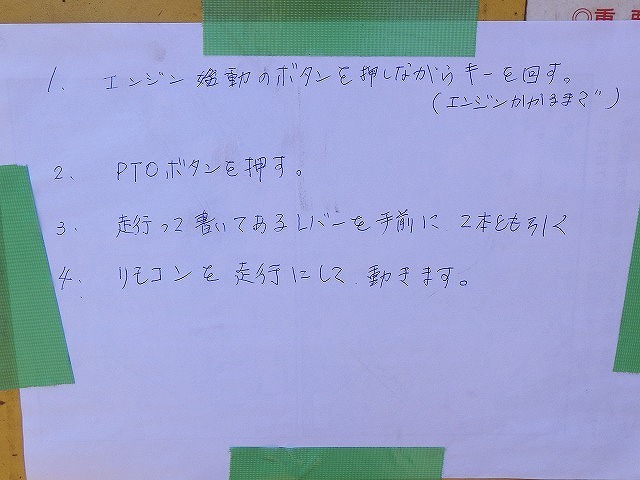 ◎重要
1. エンジン始動のボタンを押しながらキーを回す。
(エンジンかかるまで)
2. PTOボタンを押す。
3. 走行って書いてあるレバーを手前に2本とも引く
4. リモコンを走行にして動きます。